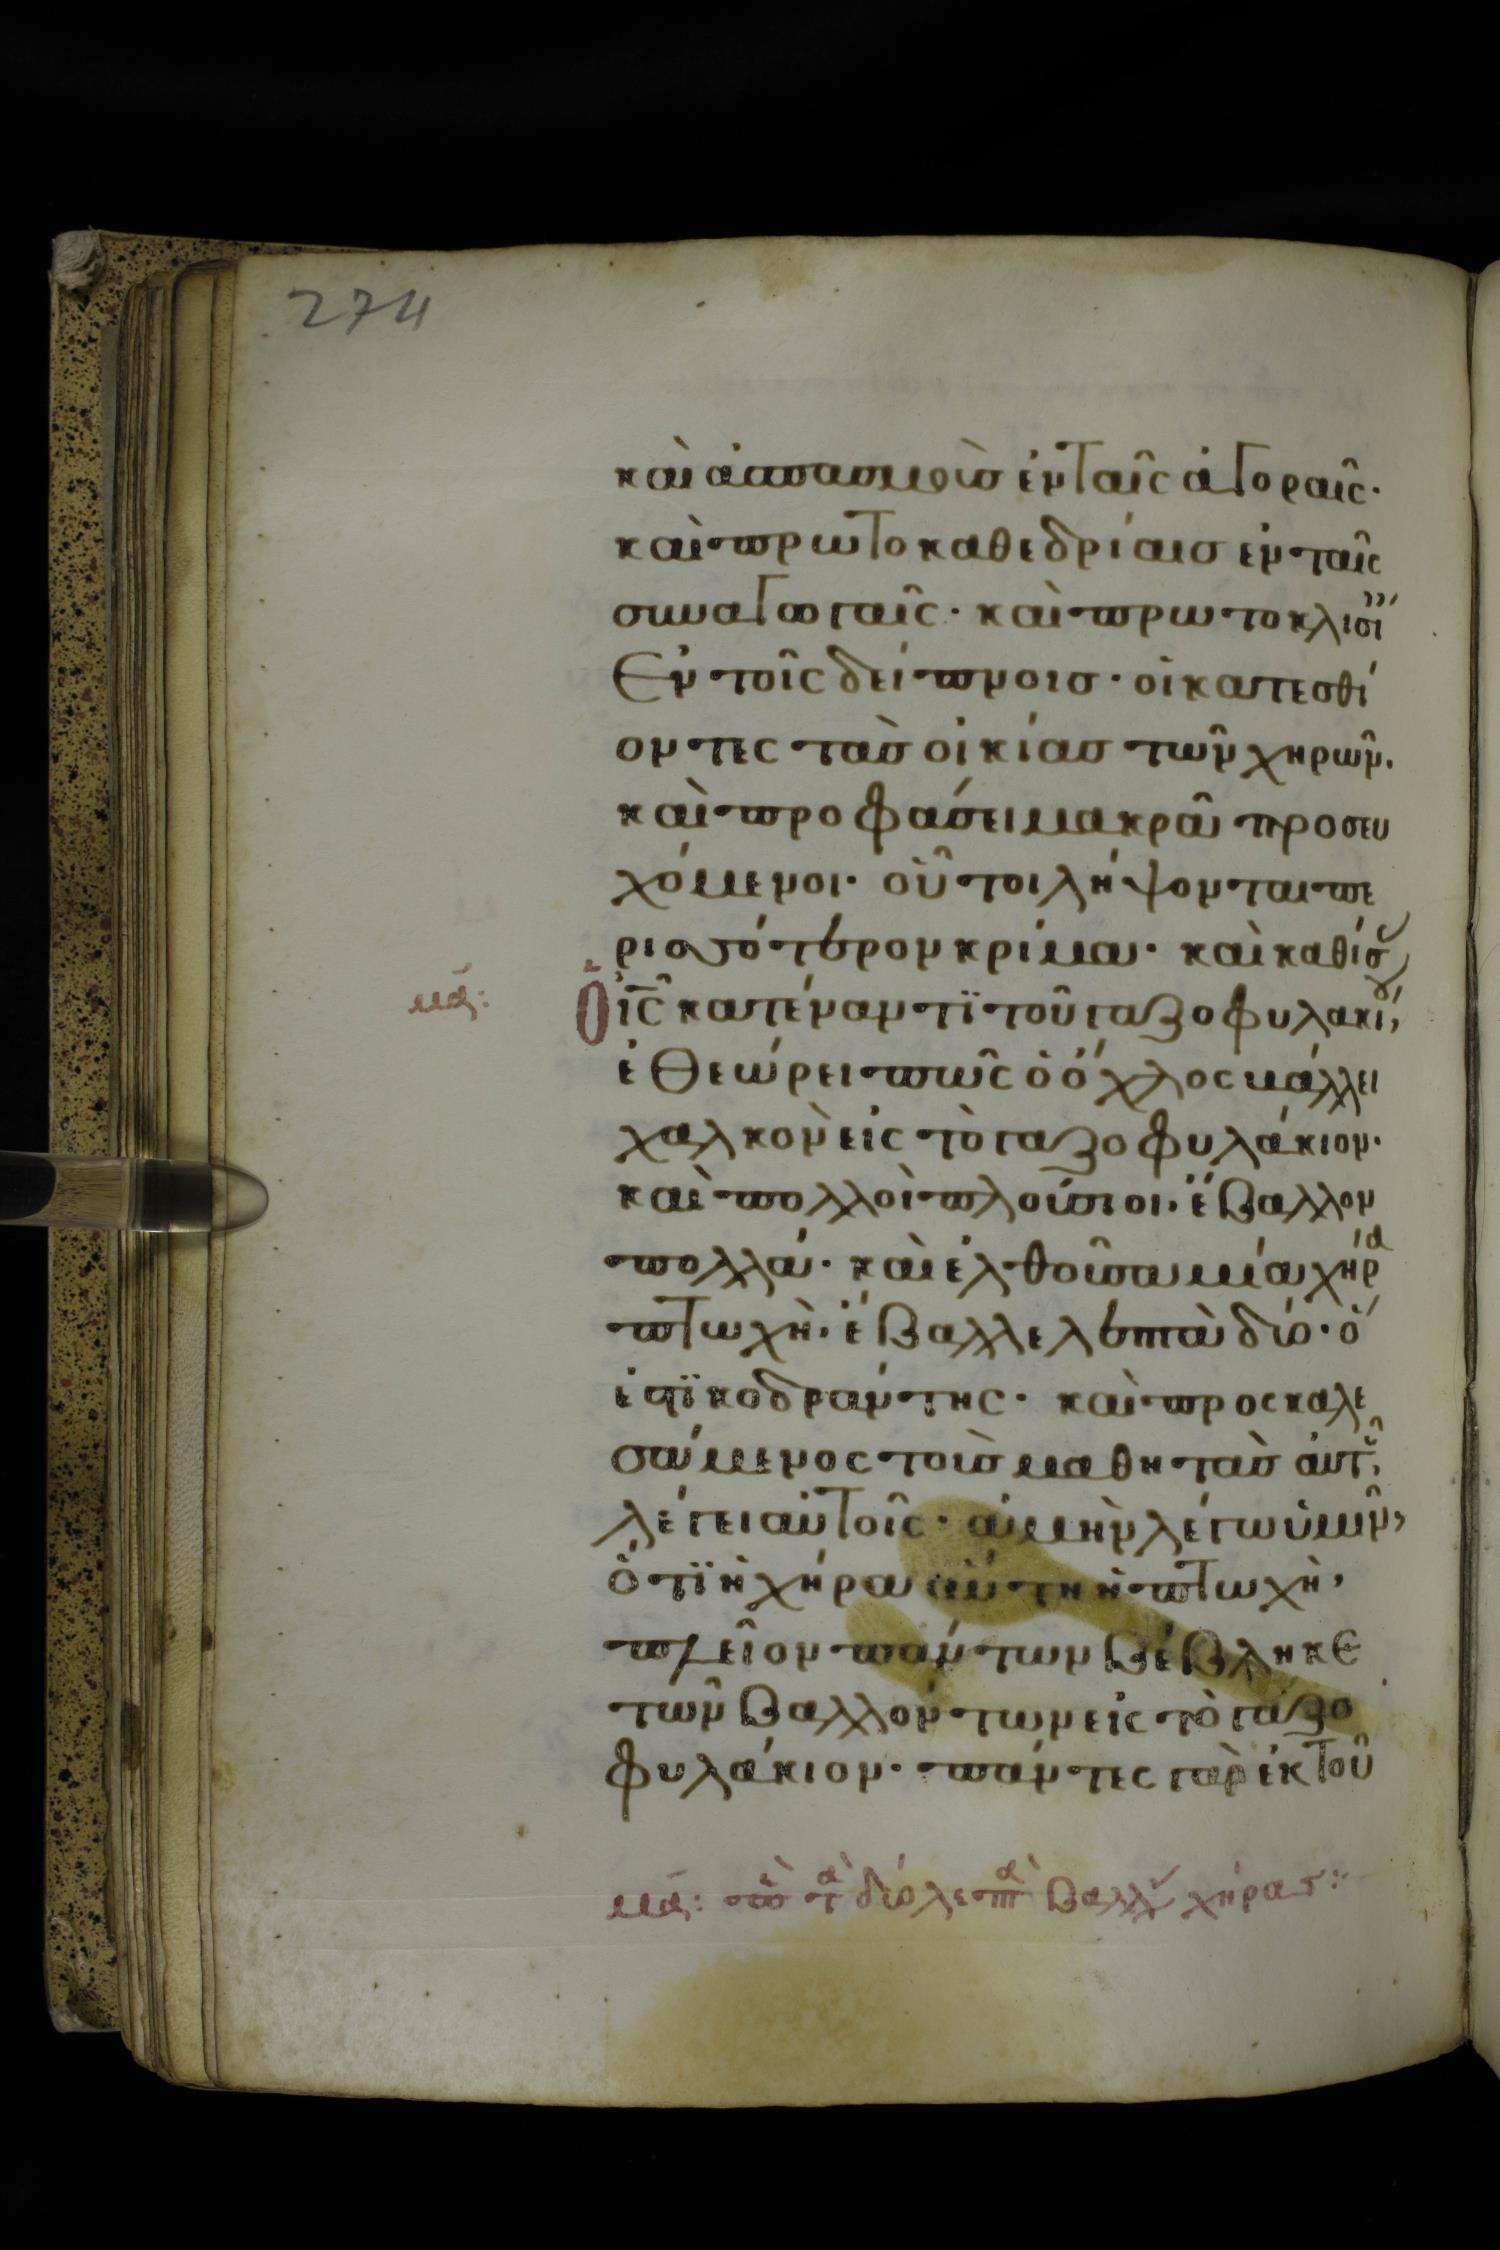 274
καὶ ἀσπασμοὺσ ἐν ταῖς ἀγοραῖς·
καὶ πρωτοκαθεδρίαισ ἐν ταῖς
συναγωγαῖς· καὶ πρωτοκλισί
Ἐν τοῖς δείπνοισ· οἱ κατεσθί
οντες τὰσ οἰκίασ τῶν χηρῶν.
καὶ προφάσει μακρᾶ προσευ
χόμενοι· οὗτοι λήψονται πε
ρισσότερον κρίμα· καὶ καθίσ
μα: Ὁ ἰς̄ κατέναντϊ τοῦ γαζοφυλακί
ἐθεώρει πῶς ὁ ὄχλος βάλλει
χαλκὸν εἰς τὸ γαζοφυλάκιον·
καὶ πολλοὶ πλούσιοι. ἔβαλλον
πολλά· καὶ ἐλθοῦσα μία χήρα
πτωχὴ. ἔβαλλε λεπτὰ δύο· ὅ
ἐστϊ κοδράντης· καὶ προσκαλε
σάμενος τοὺσ μαθητὰσ αὐτοῦ,
λέγει αὐτοῖς· ἀμὴν λέγω ὑμῖν,
ὅτϊ ἡ χήρα αὕτη ἡ πτωχὴ,
πλεῖον πάντων βέβληκε
τῶν βαλλόντων εἰς τὸ γαζο
φυλάκιον· πάντες γὰρ ἐκ τοῦ
μα: τὰ δύο λεπτὰ βαλλού χήρασ: